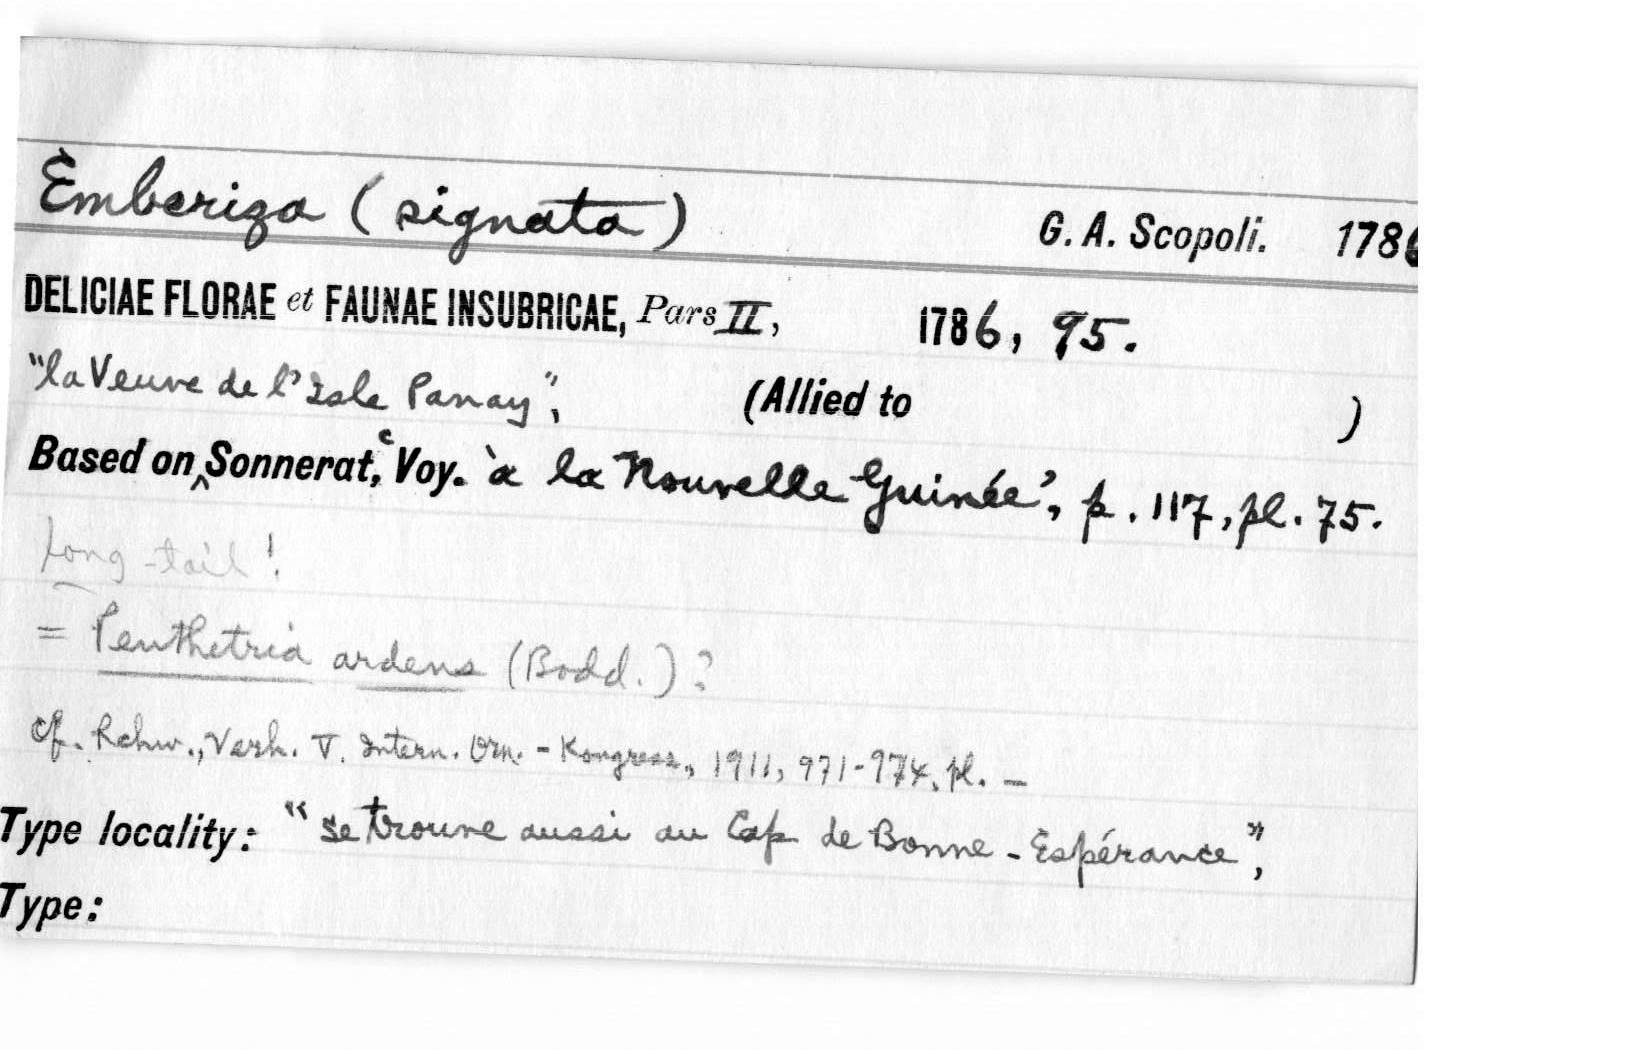 Emberiza (signata) G. A. Scopoli. 1786
DELICIAE FLORAE et FAUNAE INSUBRICAE, Pars II, 1786, 95.
"la Veuve de l'Isle Panay", (Allied to )
Based on ‸ Sonnerat, ‘Voy. à la Nouvelle Guinée’, p. 117, pl. 75.
Long-tail!
= Penthetria ardens (Bodd.)?
cf. Rchw., Verh. V. Intern. Orn.-Kongress., 1911, 971-974, pl. —
Type locality: "se trouve aussi au Cap de Bonne-Espérance",
Type: